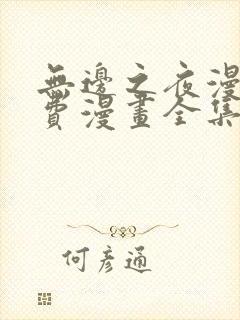 無邊之夜漫
費漫畫全集
何彥通